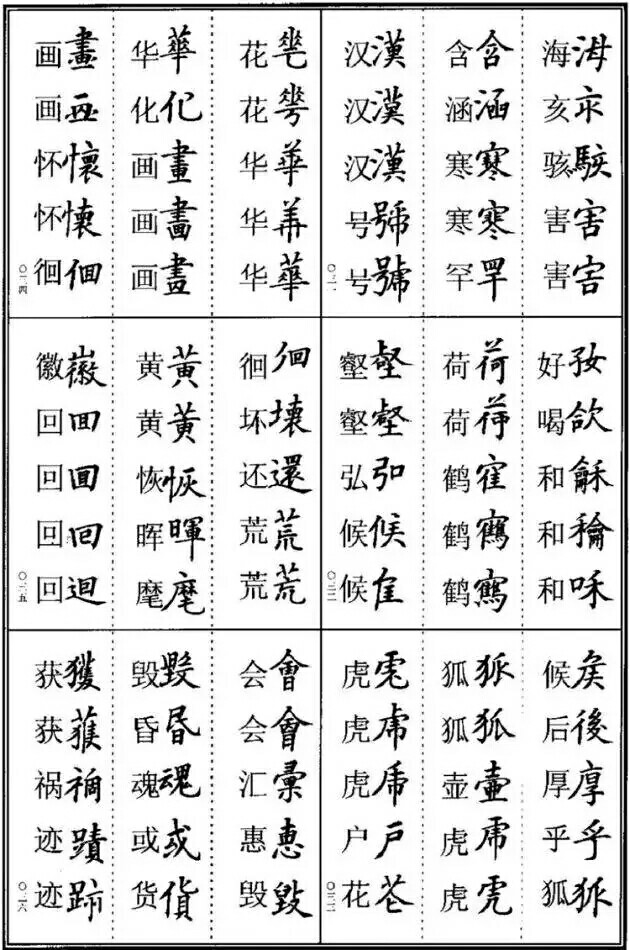 海海 亥亥 骇駭 害害 害害
含含 涵涵 寒寒 寒寒 罕罕
汉漢 汉漢 汉漢 号號 号號
〇二一
好好 喝欱 和龢 和穌 和咊
荷荷 荷荷 鹤寉 鹤鶴 鹤鶴
壑壑 壑壑 弘弘 候候 候隹
〇二二
候矦 后後 厚厚 乎乎 狐狐
狐狐 狐狐 壶壺 虎虎 虎虎
虎虎 虎虎 虎虎 户戶 花芲
〇二三
花花 花花 华華 华華 华華
华華 化化 画畫 画畫 画畫
画畫 画画 怀懷 怀懷 徊徊
〇二四
徊徊 坏壞 还還 荒荒 荒荒
黄黃 黄黃 恢恢 晖暉 麾麾
徽徽 回囬 回囬 回回 回迴
〇二五
会會 会會 汇彙 惠惠 毁毀
毁毀 昏昬 魂魂 或或 货貨
获獲 获蒦 祸禍 迹蹟 迹跡
〇二六